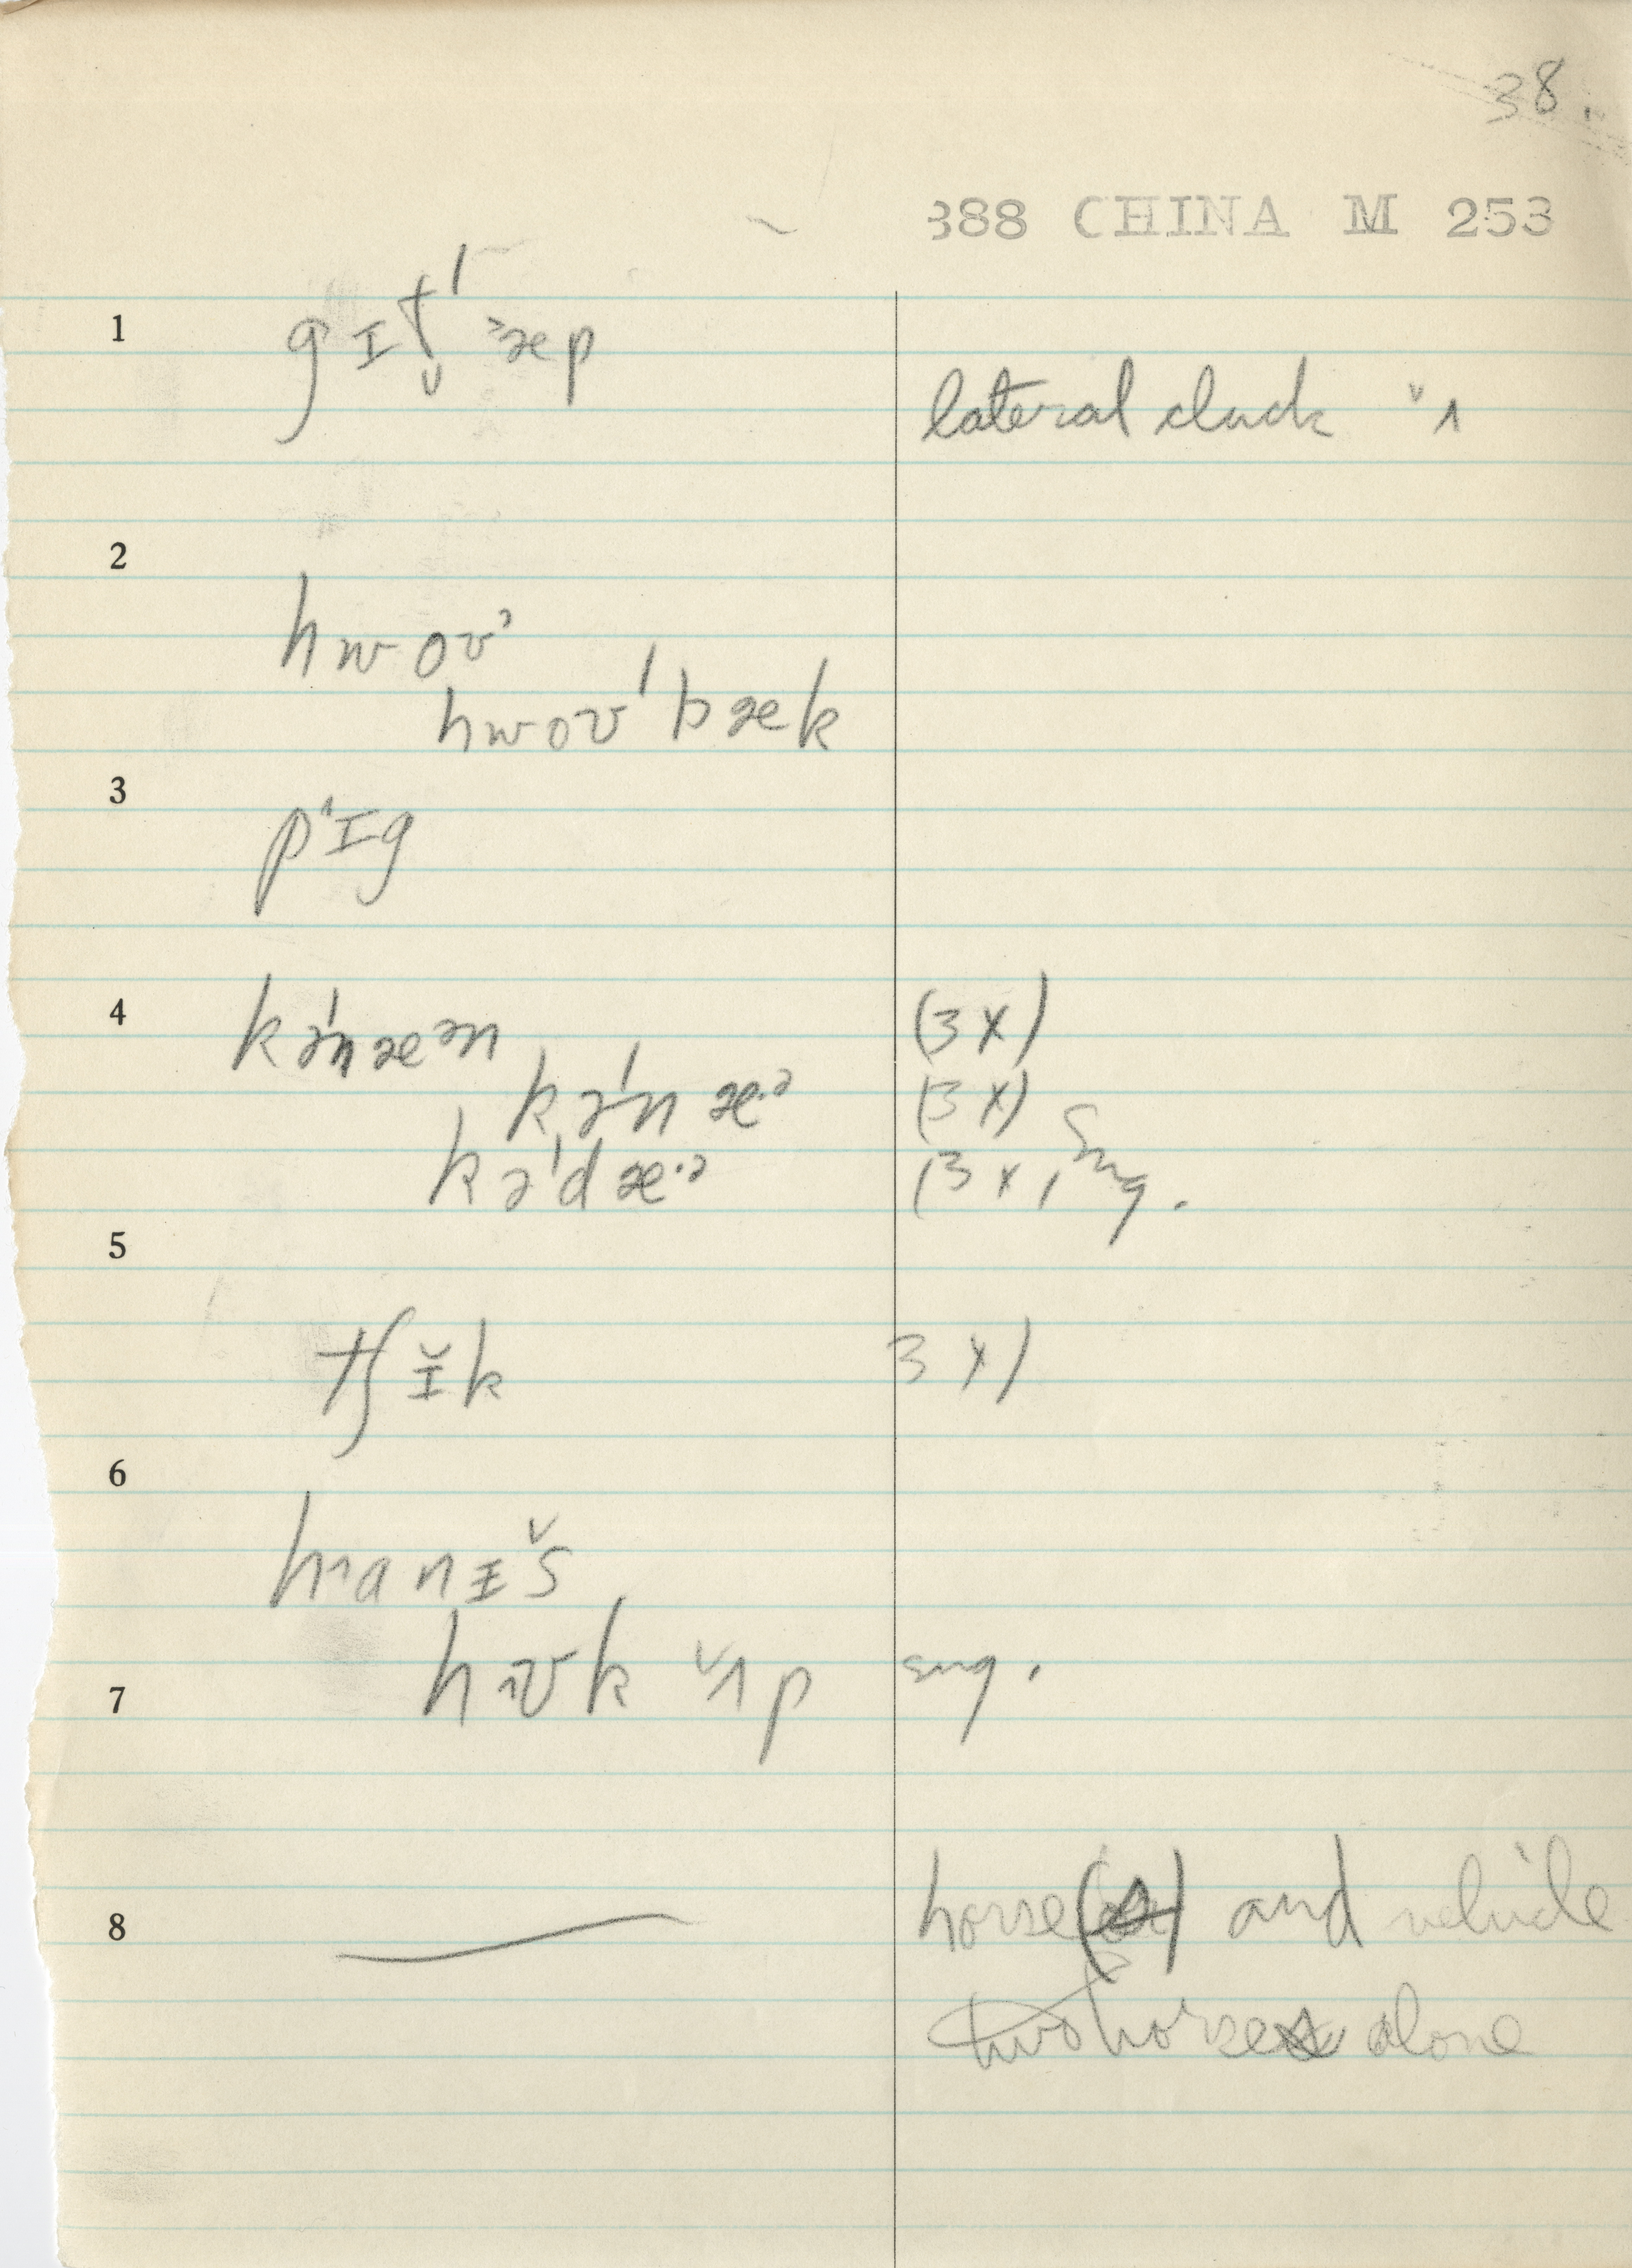 38.
388 CHINA M 253
1 gɪt̬ˈ ˃æp
lateral cluck ˅˄
2
hwoʊ˒
hwoʊˈbæk
3 p˄ɪg
4 kəˈnæən (3x)
kəˈnæ·ə (3x)
kəˈdæ·ə (3x) Eng.
5
tʃɪ̆k 3x)
6
h˄anɪ˅s
7 h˄ʊk ˅˄p eng.
8 horse(s) and vehicle
two horses alone